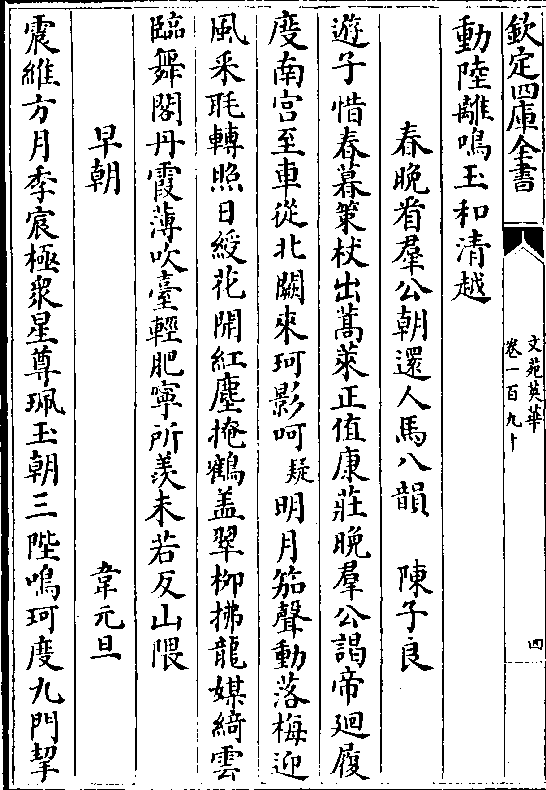 欽定四庫全書
文苑英華
卷一百九十
四
動陸離鳴玉和清越
春晚看羣公朝還人馬八韻　陳子良
遊子惜春暮策杖出蒿萊正值康莊晚羣公謁帝廻履
度南宫至車從北闕來珂影呵疑明月笳聲動落梅迎
風采眊轉照日綬花開紅塵掩鶴盖翠柳拂龍媒綺雲
臨舞閣丹霞薄吹臺輕肥寧所羨未若反山隈
早朝　韋元旦
震維方月季宸極衆星尊珮玉朝三陛鳴珂度九門挈